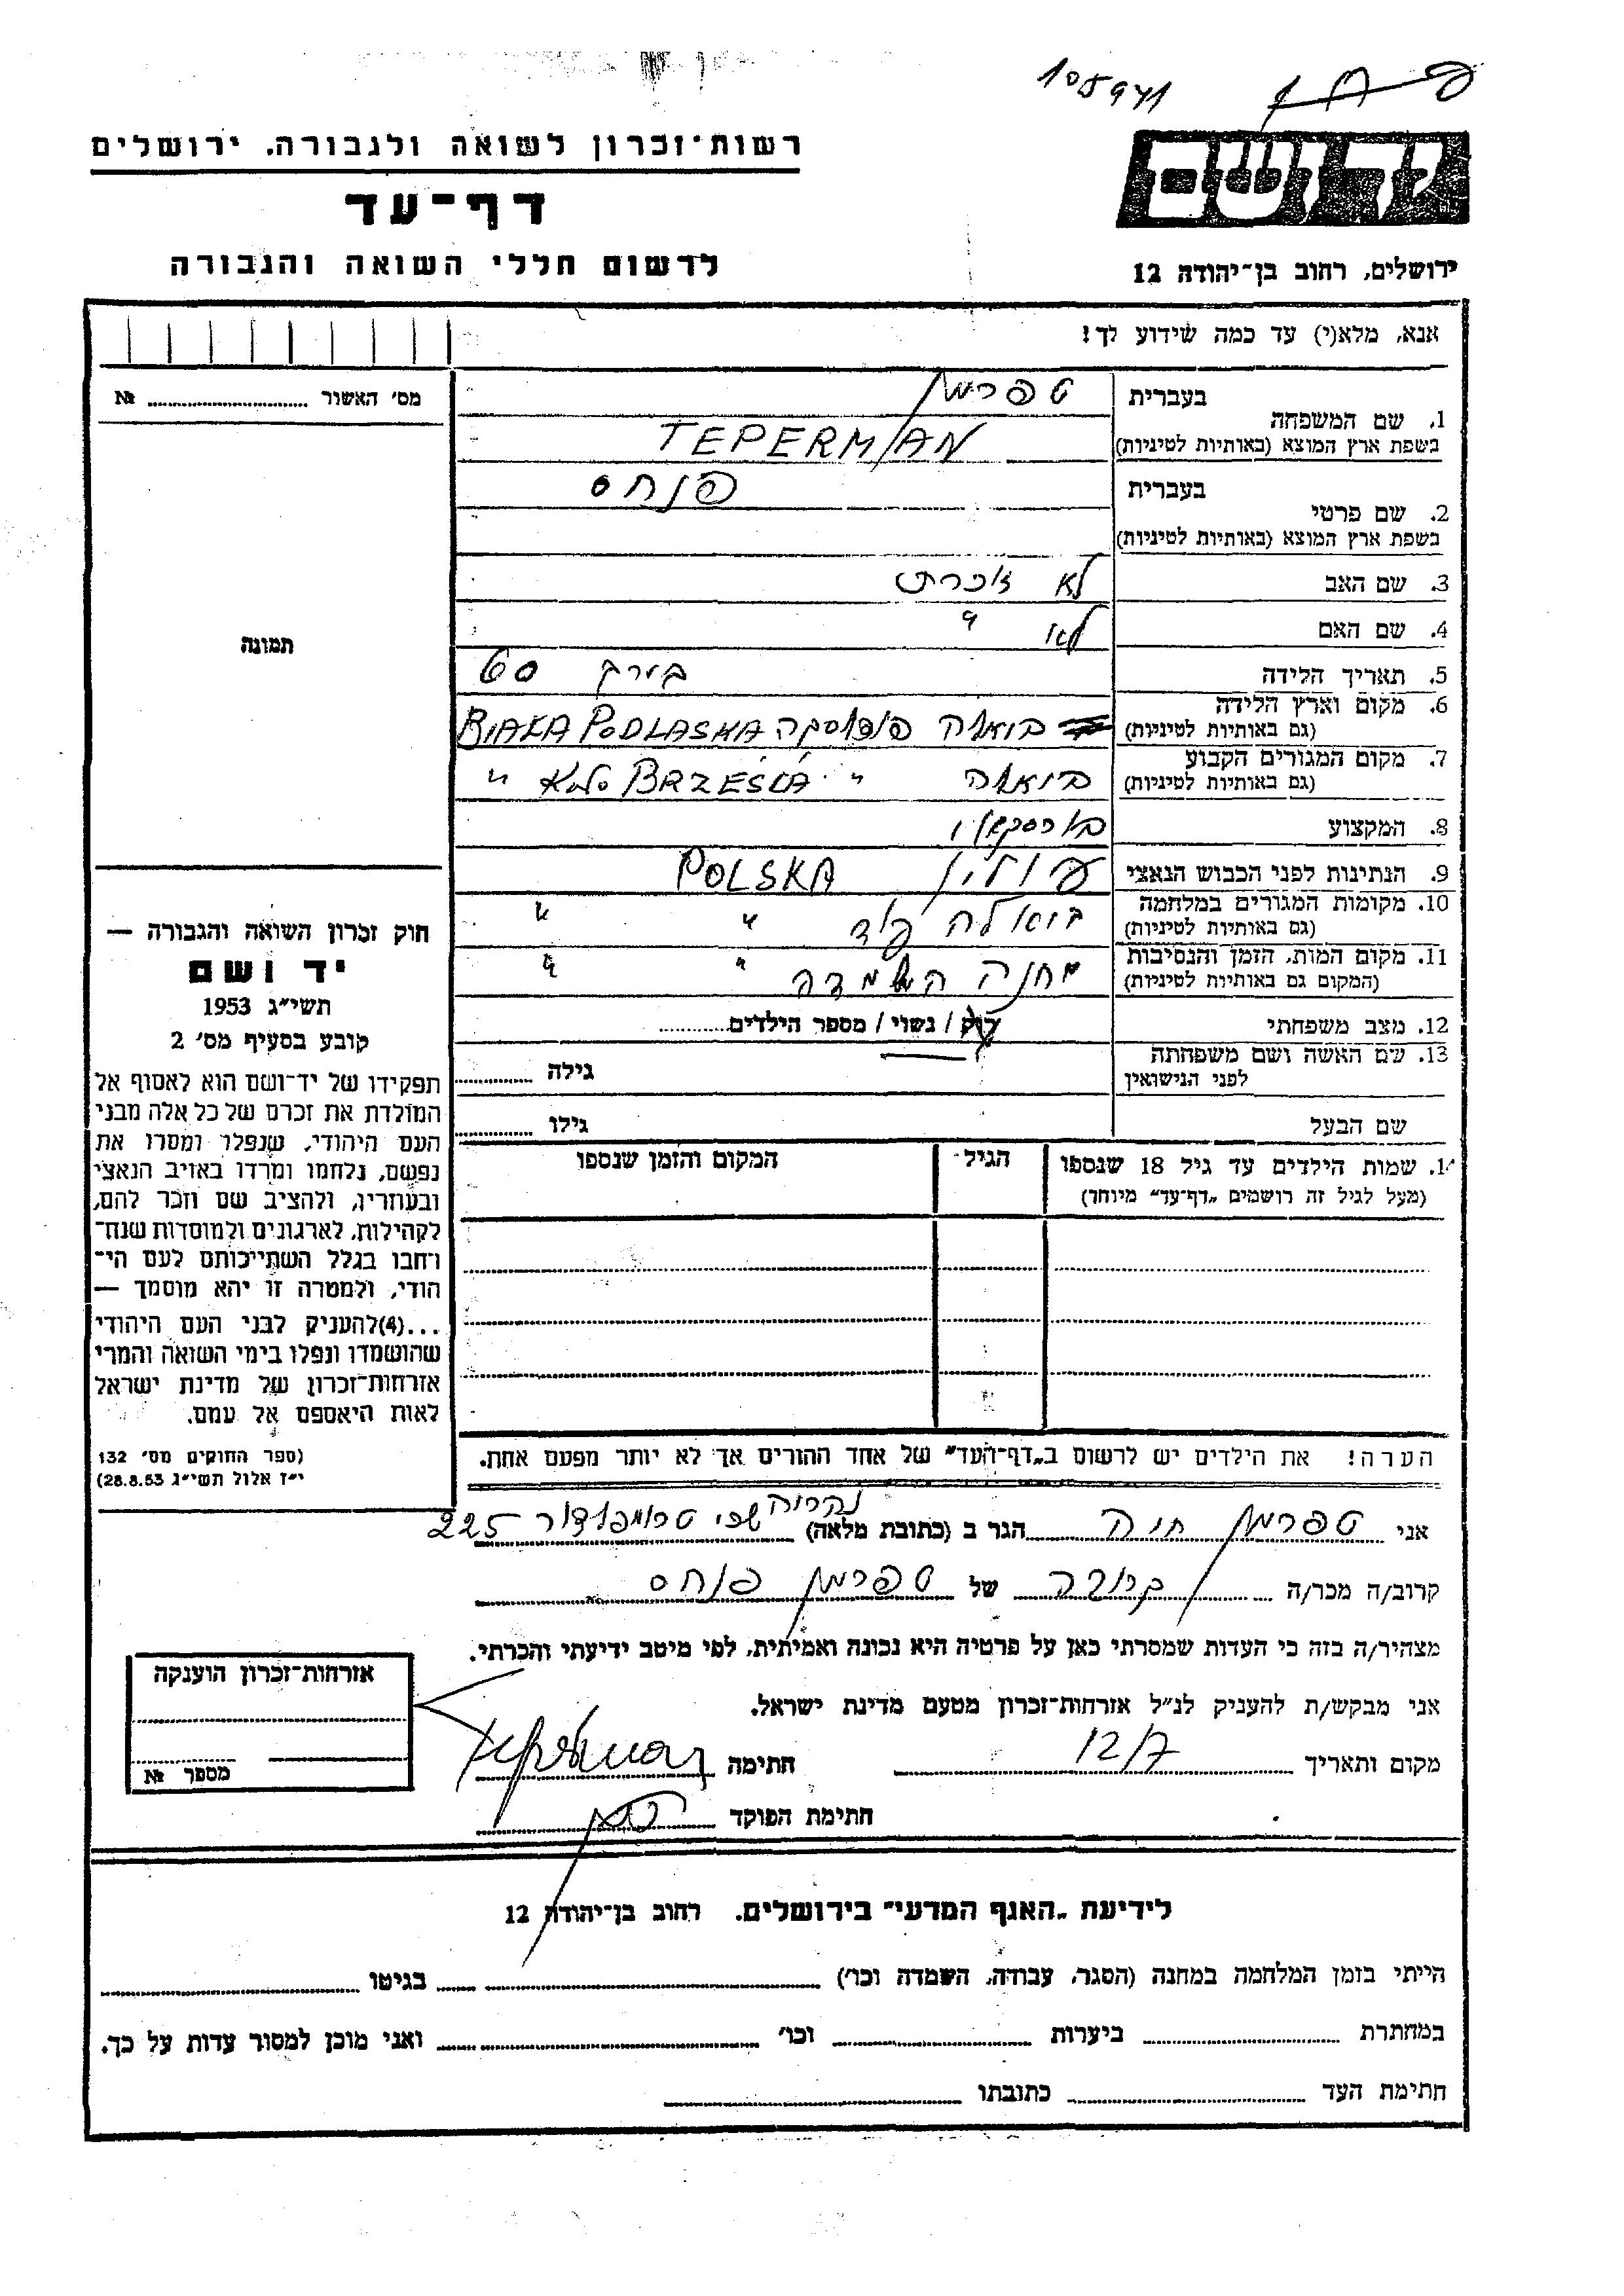 105941
רשות-זכרון לשואה ולגבורה, ירושלים
ידושם
דף-עד
לרשום חללי השואה והגבורה
ירושלים, רחוב בן-יהודה 12
אנא, מלא(י) עד כמה שידוע לך!
מס׳ האשור № 
בעברית טפרמן
1. שם המשפחה
בשפת ארץ המוצא (באותיות לטיניות) TEPERMAN
בעברית פנחס
2. שם פרטי
בשפת ארץ המוצא (באותיות לטיניות)
3. שם האב לא זוכרת
4. שם האם לא "
תמונה
5. תאריך הלידה בערך 60
6. מקום וארץ הלידה
(גם באותיות לטיניות) ביאלה פודלסקה BIAŁA PODLASKA
7. מקום המגורים הקבוע
(גם באותיות לטיניות) ביאלה " BRZESKA "
8. המקצוע
9. הנתינות לפני הכבוש הנאצי פולין POLSKA
10. מקומות המגורים במלחמה
(גם באותיות לטיניות) ביאלה פוד " "
11. מקום המות, הזמן והנסיבות
(המקום גם באותיות לטיניות) מחנה השמדה " "
12. מצב משפחתי רווק / נשוי / מספר הילדים
13. שם האשה ושם משפחתה
לפני הנישואין גילה
שם הבעל גילו
14. שמות הילדים עד גיל 18 שנספו הגיל המקום והזמן שנספו
(מעל לגיל זה רושמים „דף-עד" מיוחד)
חוק זכרון השואה והגבורה —
יד ושם
תשי"ג 1953
קובע בסעיף מס׳ 2
תפקידו של יד-ושם הוא לאסוף אל
המולדת את זכרם של כל אלה מבני
העם היהודי, שנפלו ומסרו את
נפשם, נלחמו ומרדו באויב הנאצי
ובעוזריו, ולהציב שם וזכר להם,
לקהילות, לארגונים ולמוסדות שנח-
רחבו בגלל השתייכותם לעם הי-
הודי, ולמטרה זו יהא מוסמך —
...(4)להעניק לבני העם היהודי
שהושמדו ונפלו בימי השואה והמרי
אזרחות-זכרון של מדינת ישראל
לאות היאספם אל עמם.
(ספר החוקים מס׳ 132
י"ז אלול תשי"ג 28.8.53)
הערה! את הילדים יש לרשום ב„דף-העד" של אחד ההורים אך לא יותר מפעם אחת.
אני טפרמן חיה הגר ב (כתובת מלאה) טרומפלדור 225
קרוב/ה מכר/ה קרובה של טפרמן פנחס
מצהיר/ה בזה כי העדות שמסרתי כאן על פרטיה היא נכונה ואמיתית, לפי מיטב ידיעתי והכרתי.
אני מבקש/ת להעניק לנ"ל אזרחות-זכרון מטעם מדינת ישראל.
מקום ותאריך 12/7 חתימה
חתימת הפוקד
אזרחות-זכרון הוענקה
מספר №
לידיעת „האגף המדעי" בירושלים. רחוב בן-יהודה 12
הייתי בזמן המלחמה במחנה (הסגר, עבודה, השמדה וכו׳) בגיטו
במחתרת ביערות וכו׳ ואני מוכן למסור עדות על כך.
חתימת העד כתובתו